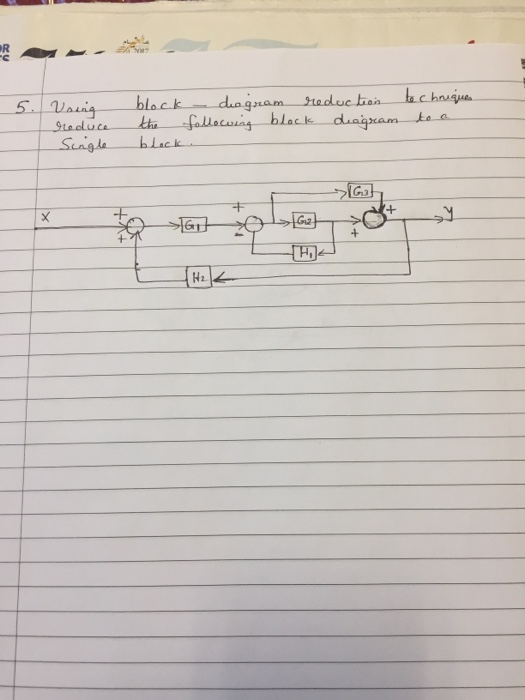 5. Using block - diagram reduction technique
reduce the following block diagram to a
Single block.
G3
X + G1 + G2 + y
+ - +
H1
H2